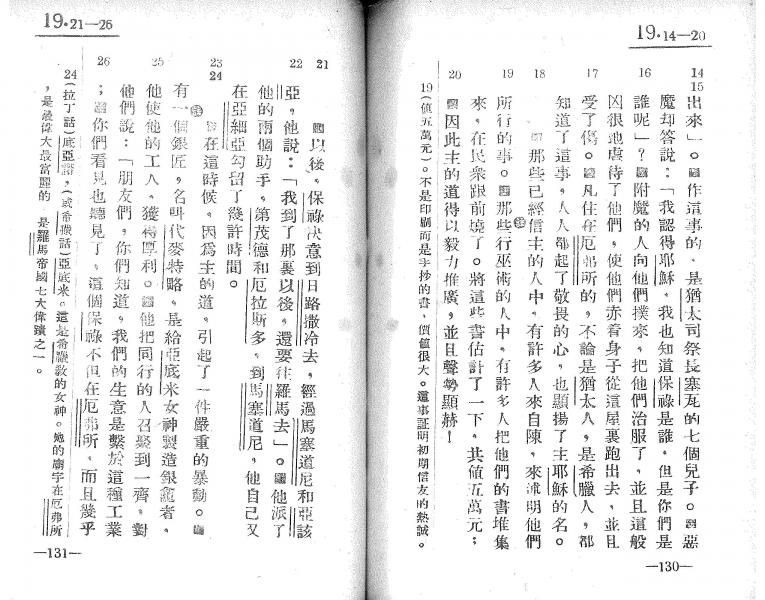 19·14—20
14 15 出來」。作這事的，是猶太司祭長塞瓦的七個兒子。惡
魔却答說：「我認得耶穌，我也知道保祿是誰，但是你們是
16 誰呢」？附魔的人向他們撲來，把他們治服了，並且這般
凶狠地虐待了他們，使他們赤着身子從這屋裏跑出去，並且
17 受了傷。凡住在厄弗所的，不論是猶太人，是希臘人，都
知道了這事，人人都起了敬畏的心，也顯揚了主耶穌的名。
18 那些已經信主的人中，有許多人來自陳，來述明他們
19 所行的事。那些行巫術的人中，有許多人把他們的書堆集
來，在民衆跟前燒了。將這些書估計了一下，共値五萬元；
20 因此主的道得以毅力推廣，並且聲勢顯赫！
19（値五萬元）。不是印刷而是手抄的書，價值很大。這事証明初期信友的熱誠。
—130—
19·21—26
21 以後，保祿决意到日路撒冷去，經過馬塞道尼和亞該
22 亞，他說：「我到了那裏以後，還要往羅馬去」。他派了
他的兩個助手，第茂德和厄拉斯多，到馬塞道尼，他自己又
在亞細亞勾留了幾許時間。
23 24 在這時候，因爲主的道，引起了一件嚴重的暴動。
有一個銀匠，名叫代麥特略，是給亞底米女神製造銀龕者，
25 他使他的工人，獲得厚利。他把同行的人召聚到一齊，對
他們說：「朋友們，你們知道，我們的生意是繫於這種工業
26 ；你們看見也聽見了，這個保祿不但在厄弗所，而且幾乎
24（拉丁話）底亞諾，（或希臘話）亞底米。這是希臘敎的女神。她的廟宇在厄弗所
，是最偉大最富麗的 是羅馬帝國七大偉蹟之一。
—131—